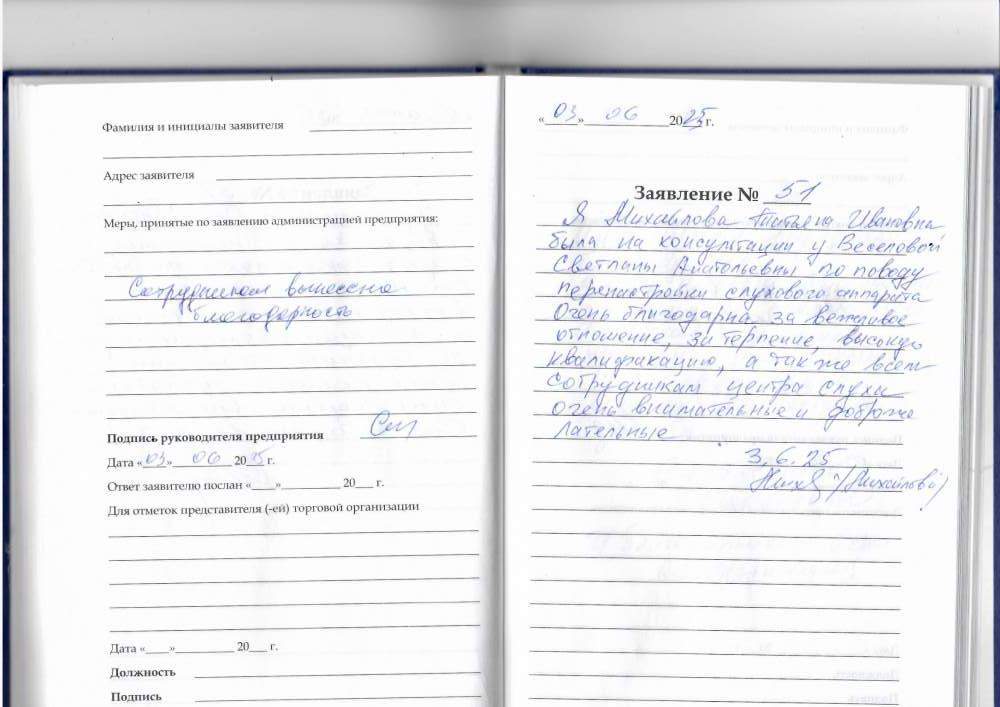 Фамилия и инициалы заявителя
Адрес заявителя
Меры, принятые по заявлению администрацией предприятия:
Сотрудникам вынесена
благодарность
Подпись руководителя предприятия
Дата «03» 06 2025 г.
Ответ заявителю послан «____» __________ 20___ г.
Для отметок представителя (-ей) торговой организации
Дата «____» __________ 20___ г.
Должность
Подпись
«03» 06 2025 г.
Заявление № 51
Я Михайлова Татьяна Ивановна
была на консультации у Веселовой
Светланы Анатольевны по поводу
перенастройки слухового аппарата
Очень благодарна за вежливое
отношение, за терпение, высокую
квалификацию, а также всем
сотрудникам центра слуха
очень внимательные и доброже
лательные
3.6.25
(Михайлова)